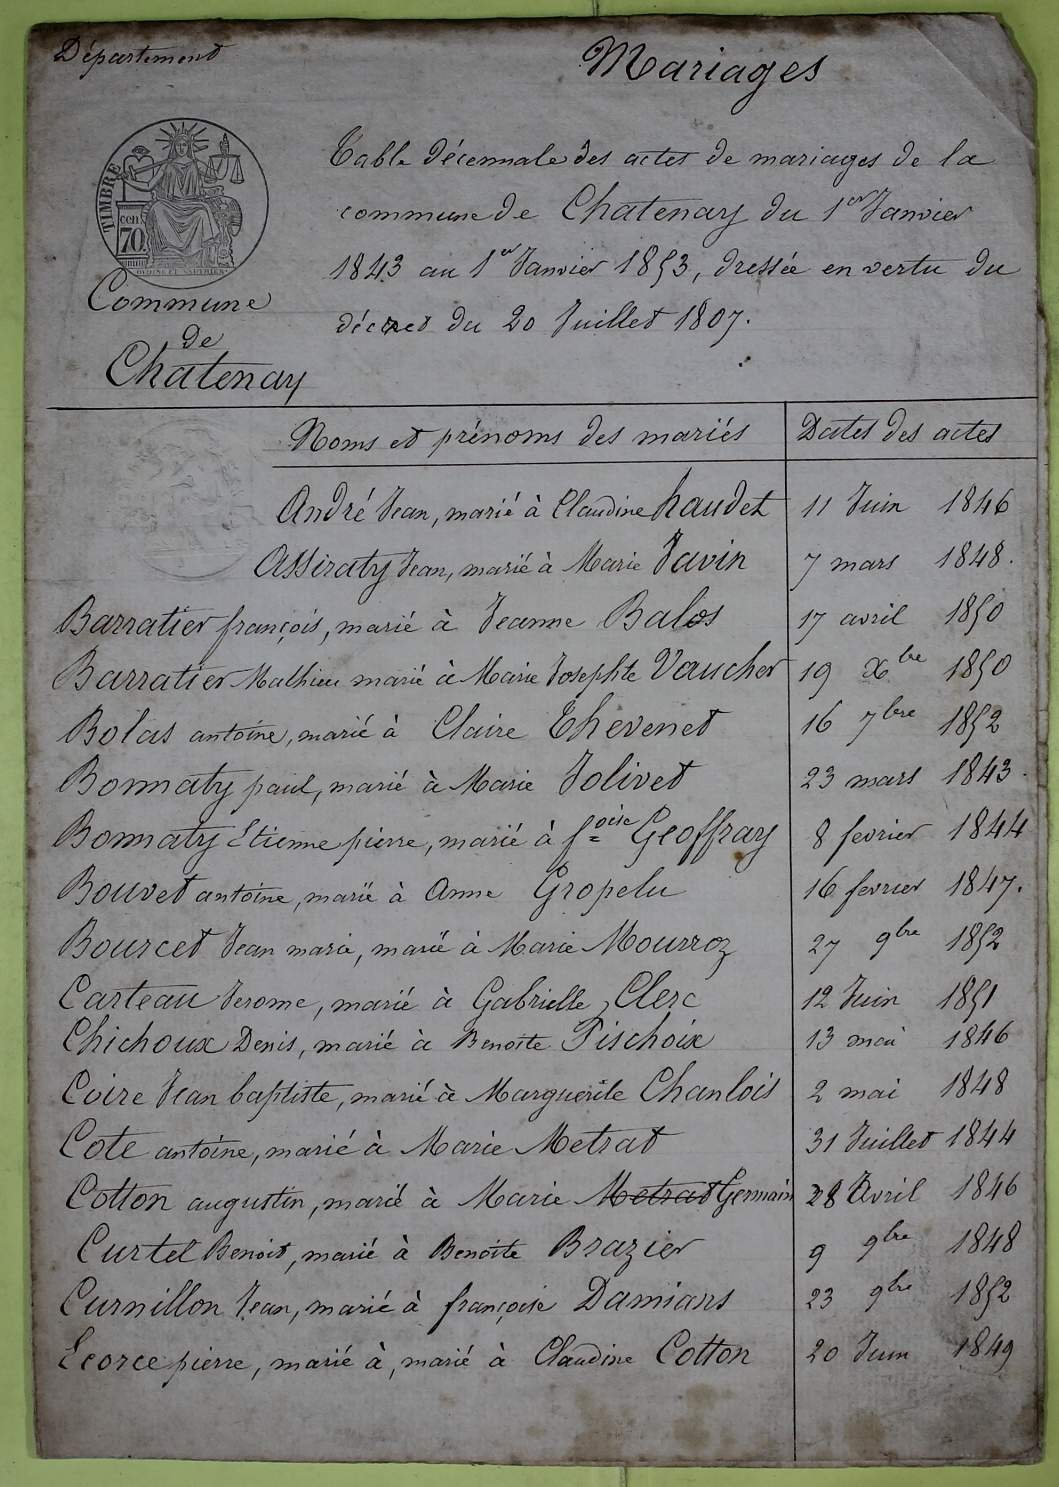 Département
Mariages
TIMBRE
cen
70
Commune
de
Chatenay
Table décennale des actes de mariages de la
commune de Chatenay du 1er Janvier
1843 au 1er Janvier 1853, dressée en vertu du
décret du 20 Juillet 1807.
Noms et prénoms des mariés Dates des actes
André Jean, marié à Claudine haudet 11 Juin 1846
Assiraty Jean, marié à Marie Javin 7 mars 1848.
Barratier françois, marié à Jeanne Balos 17 avril 1850
Barratier Mathieu marié à Marie Josephte Vaucher 19 Xbre 1850
Bolas antoine, marié à Claire Thevenet 16 7bre 1852
Bonnaty paul, marié à Marie Jolivet 23 mars 1843.
Bonnaty Etienne pierre, marié à foise Geoffray 8 fevrier 1844
Bouvet antoine, marié à Anne Gropelu 16 fevrier 1847.
Bourcet Jean marie, marié à Marie Mourroz 27 9bre 1852
Carteau Jerome, marié à Gabrielle Clerc 12 Juin 1851
Chichoux Denis, marié à Benoite Pischoix 13 mai 1846
Coire Jean baptiste, marié à Marguerite Chanlois 2 mai 1848
Cote antoine, marié à Marie Metrat 31 Juillet 1844
Cotton augustin, marié à Marie Metrat Germain 28 Avril 1846
Curtel Benoit, marié à Benoite Brazier 9 9bre 1848
Curnillon Jean, marié à françoise Damians 23 9bre 1852
Ecorce pierre, marié à, marié à Claudine Cotton 20 Juin 1849